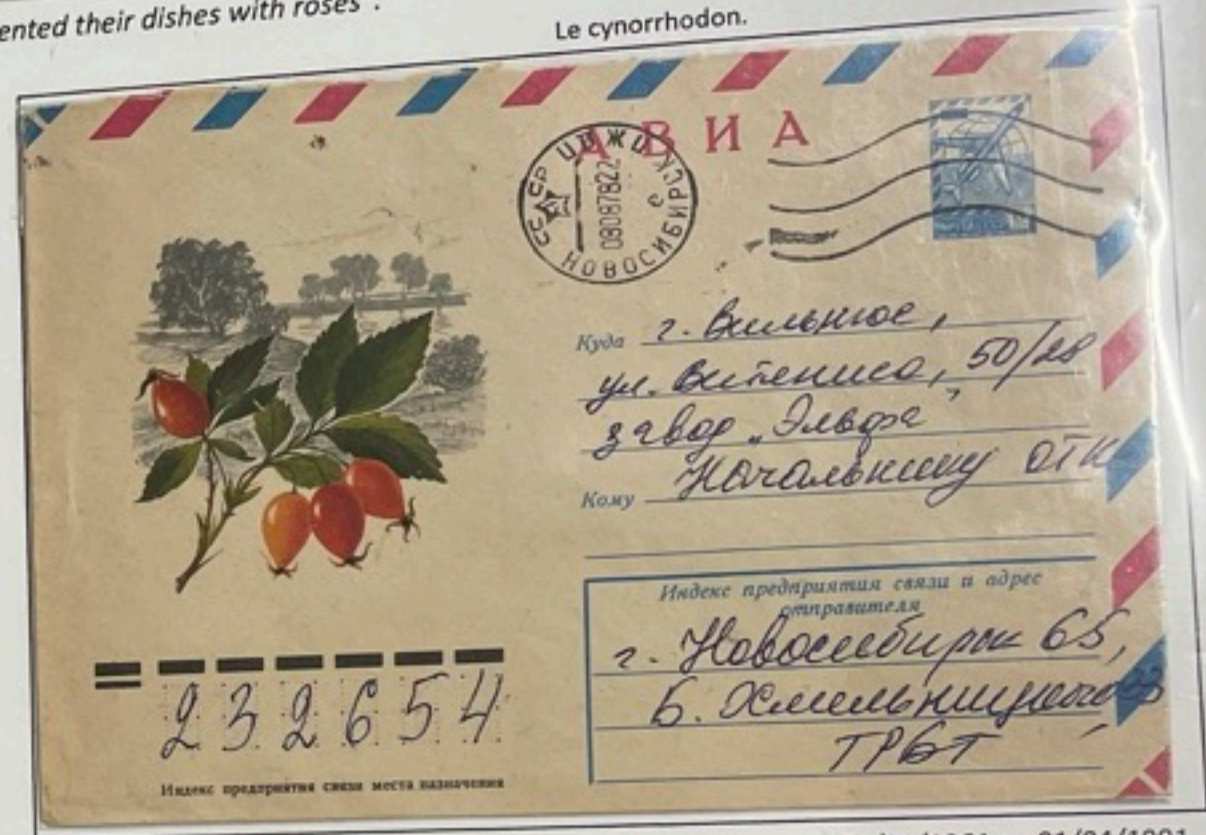 ented their dishes with roses".
Le cynorrhodon.
АВИА
СССР ЦПЖД
080878 22
НОВОСИБИРСК
Куда г. Вильнюс,
ул. Витениса, 50/28
завод „Эльфа"
Кому Начальнику ОТК
Индекс предприятия связи и адрес
отправителя
г. Новосибирск 65,
Б. Хмельницкого
ТРБТ
232654
Индекс предприятия связи места назначения
01/04/1991